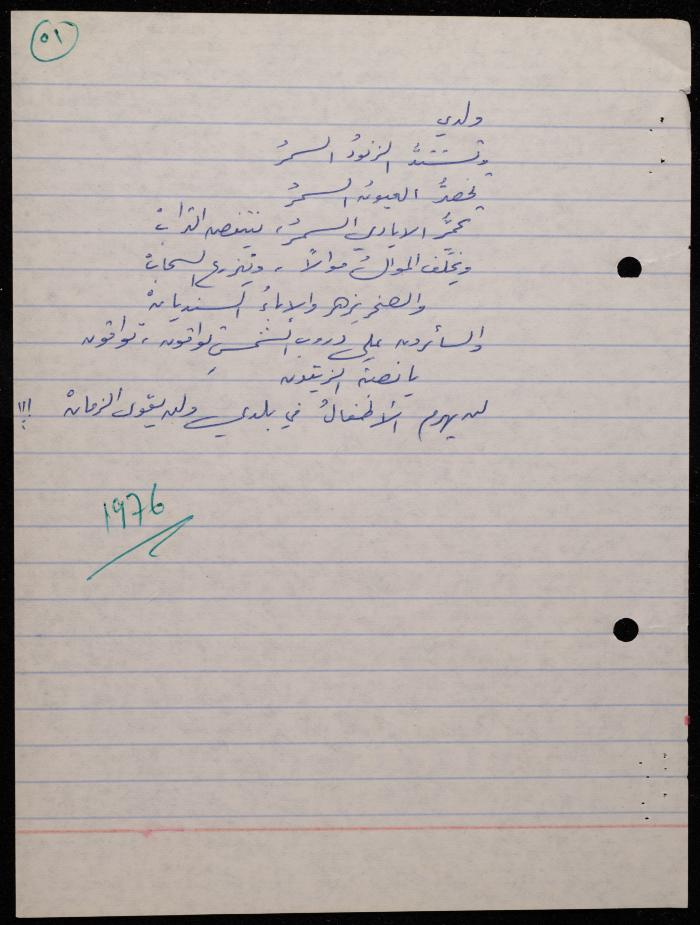 ٥١
ولدي
وتشتدُّ الزنودُ السمرُ
تخضرُّ العيونُ السمرُ
تحمرُّ الايادي السمرُ، ينتفض الترابْ
ويخلّف الموالُ موالاً، وينزرع السحابْ
والصخر يزهر والاباءُ السنديانْ
والسائرون على دروب الشمسِ تواقون، تواقون
يا غصن الزيتون
لن يهرم الأطفالُ في بلدي ولن يقوى الزمانْ !!!
1976